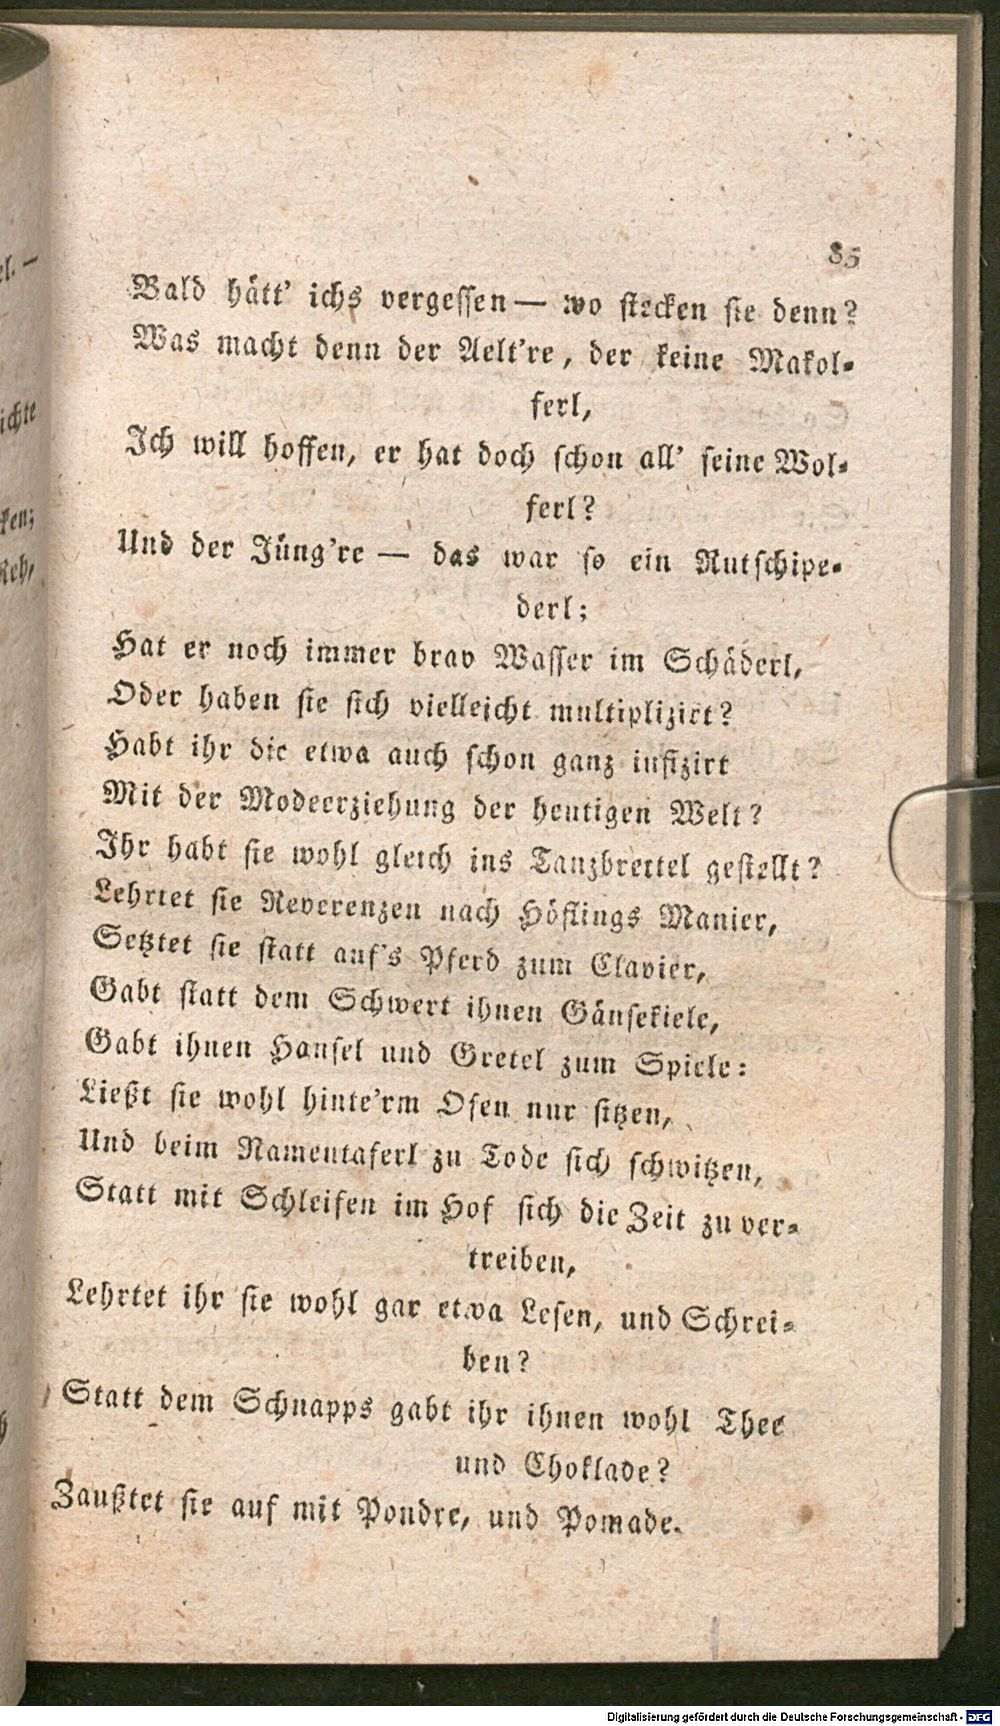 85
Bald hätt' ichs vergessen — wo stecken sie denn?
Was macht denn der Aelt're, der keine Makol-
ferl,
Ich will hoffen, er hat doch schon all' seine Wol-
ferl?
Und der Jüng're — das war so ein Rutschipe-
derl;
Hat er noch immer brav Wasser im Schäderl,
Oder haben sie sich vielleicht multiplizirt?
Habt ihr die etwa auch schon ganz infizirt
Mit der Modeerziehung der heutigen Welt?
Ihr habt sie wohl gleich ins Tanzbrettel gestellt?
Lehrtet sie Reverenzen nach Höflings Manier,
Setztet sie statt auf's Pferd zum Clavier,
Gabt statt dem Schwert ihnen Gänsekiele,
Gabt ihnen Hansel und Gretel zum Spiele:
Ließt sie wohl hinte'rm Ofen nur sitzen,
Und beim Namentaferl zu Tode sich schwitzen,
Statt mit Schleifen im Hof sich die Zeit zu ver-
treiben,
Lehrtet ihr sie wohl gar etwa Lesen, und Schrei-
ben?
Statt dem Schnapps gabt ihr ihnen wohl Thee
und Choklade?
Zaußtet sie auf mit Poudre, und Pomade.
el. —
ichte
ken;
Reh,
Digitalisierung gefördert durch die Deutsche Forschungsgemeinschaft - DFG